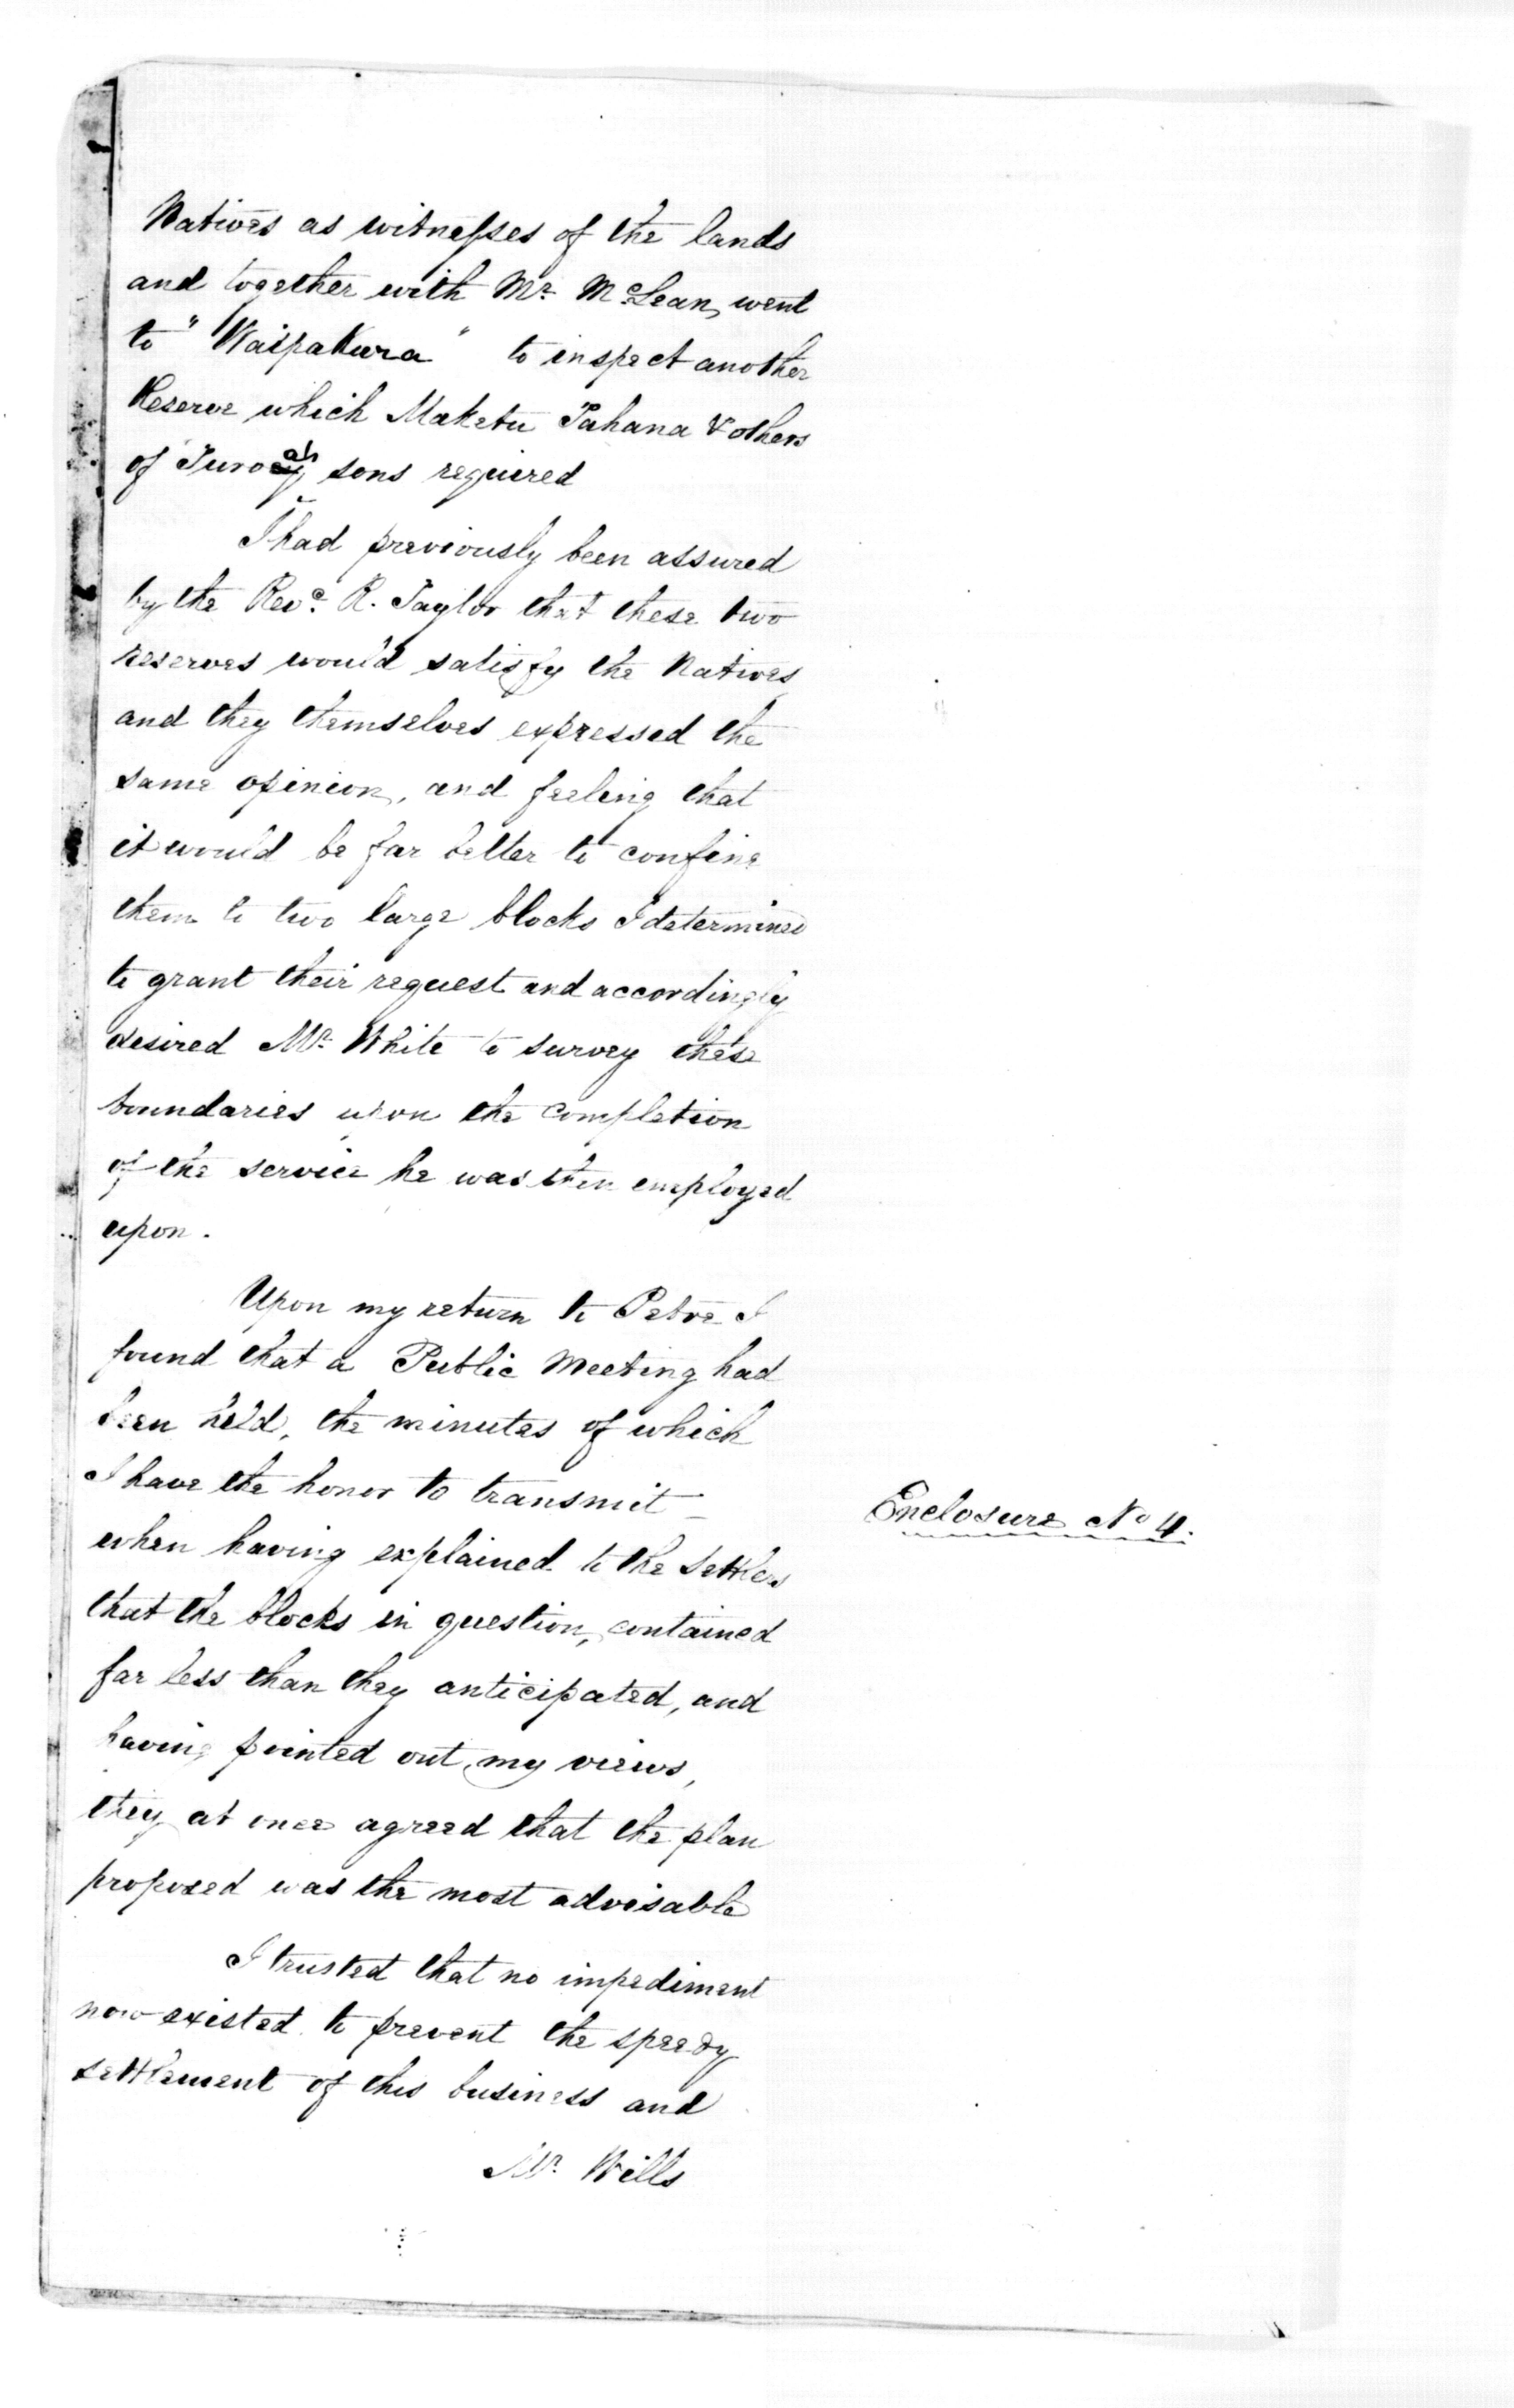 Natives as witnesses of the lands
and together with Mr. McLean, went
to "Waipakura" to inspect another
Reserve which Maketu Pahana & others
of sons required
I had previously been assured
by the Revd. R. Taylor that these two
reserves would satisfy the Natives
and they themselves expressed the
same opinion, and feeling that
it would be far better to confine
them to two large blocks I determined
to grant their request and accordingly
desired Mr. White to survey these
boundaries upon the completion
of the service he was then employed
upon.
Upon my return to Petre I
found that a Public Meeting had
been held, the minutes of which
I have the honor to transmit _
Enclosure No 4.
when having explained to the Settlers
that the blocks in question, contained
far less than they anticipated, and
having pointed out my views,
they at once agreed that the plan
proposed was the most advisable
I trusted that no impediment
now existed to prevent the speedy
settlement of this business and
Mr. Wills